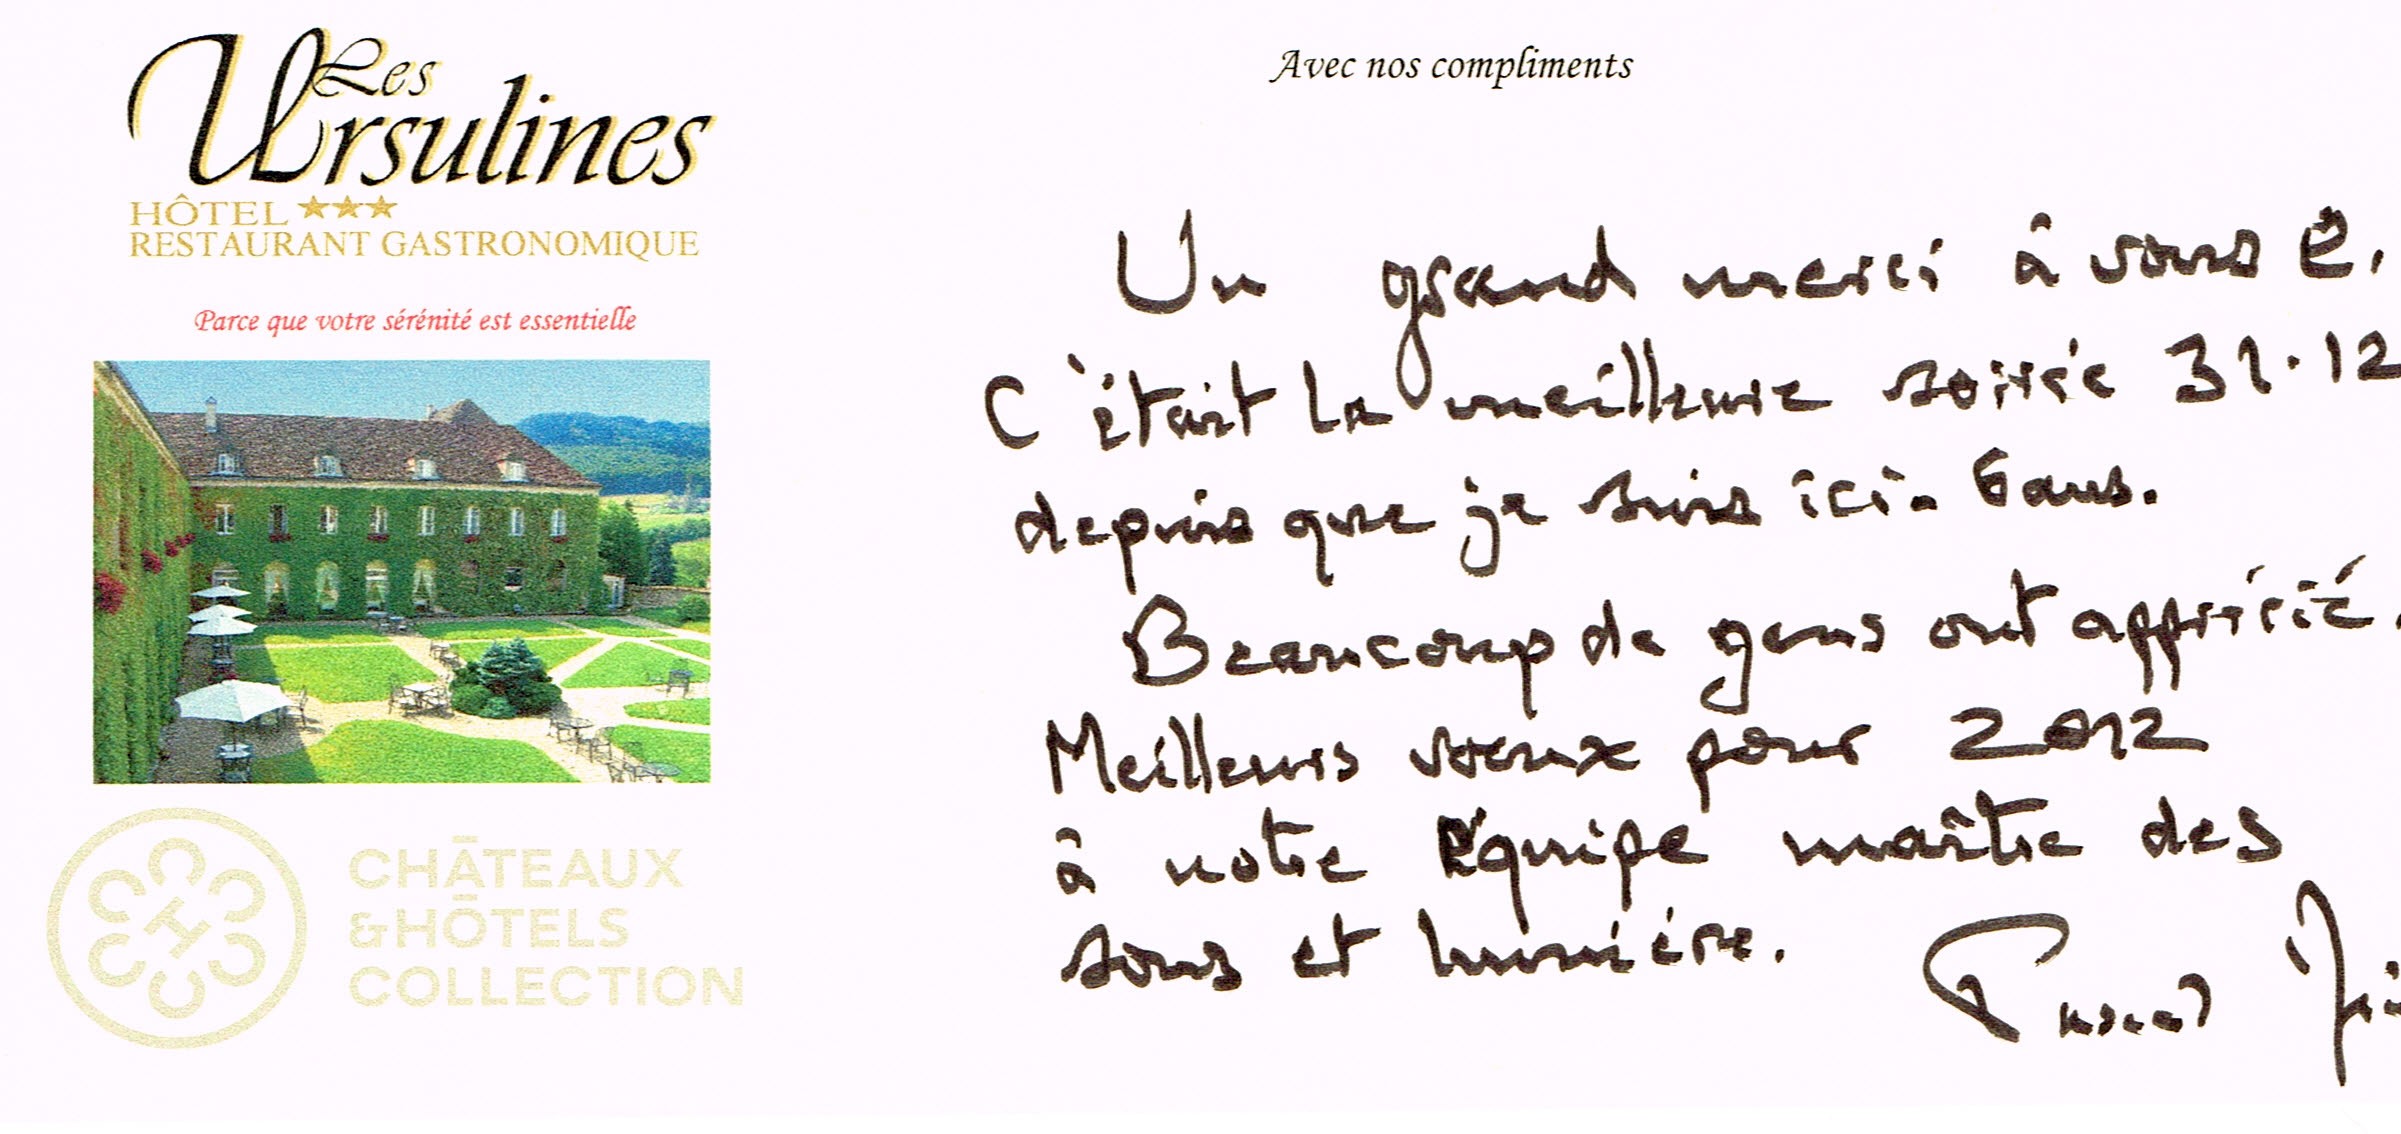 Les
Ursulines
HÔTEL ★★★
RESTAURANT GASTRONOMIQUE
Parce que votre sérénité est essentielle
CHÂTEAUX
&HÔTELS
COLLECTION
Avec nos compliments
Un grand merci à vous 2.
C'était la meilleure soirée 31.12
depuis que je suis ici. 6 ans.
Beaucoup de gens ont apprécié.
Meilleurs voeux pour 2012
à notre Équipe maître des
sons et lumière.
Pascal